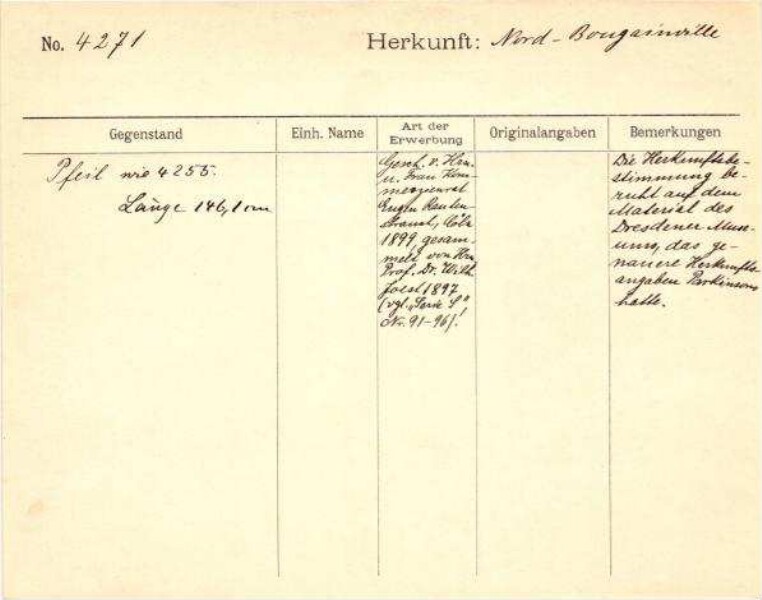 No. 4271
Herkunft: Nord-Bougainville
Gegenstand
Einh. Name
Art der Erwerbung
Originalangaben
Bemerkungen
Pfeil wie 4255.
Länge 146,1 cm
Gesch. v. Hrn.
u. Frau Kom-
merzienrat
Eugen Rauten-
strauch, Cöln
1899, gesam-
melt von Hrn
Prof. Dr. Wilh.
Joest 1897
(vgl. „Serie S"
Nr. 91-96)!
Die Herkunftsbe-
stimmung be-
ruht auf dem
Material des
Dresdener Muse-
ums, das ge-
nauere Herkunfts
angaben Parkinsons
hatte.